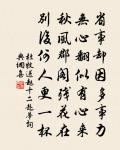 省事却因多事力
無心翻似有心來
秋風郡閣殘花在
別後何人更一杯
杜牧送趙十二赴舉